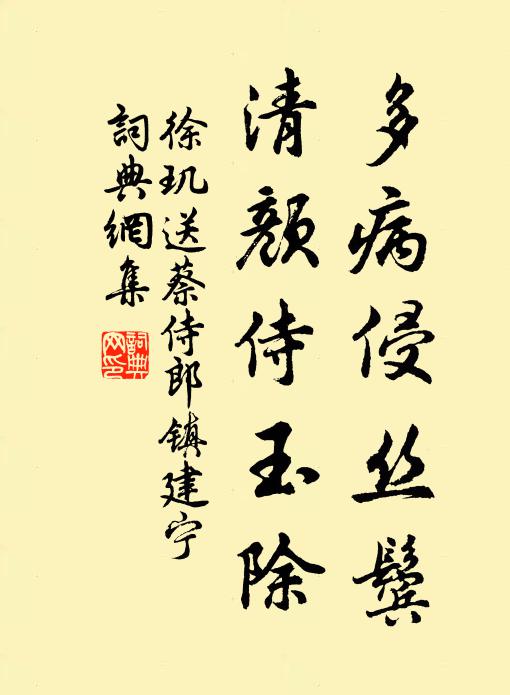 多病侵丝鬓
清颜侍玉除
徐玑送蔡侍郎镇建宁
詞典網集
詞典
网印